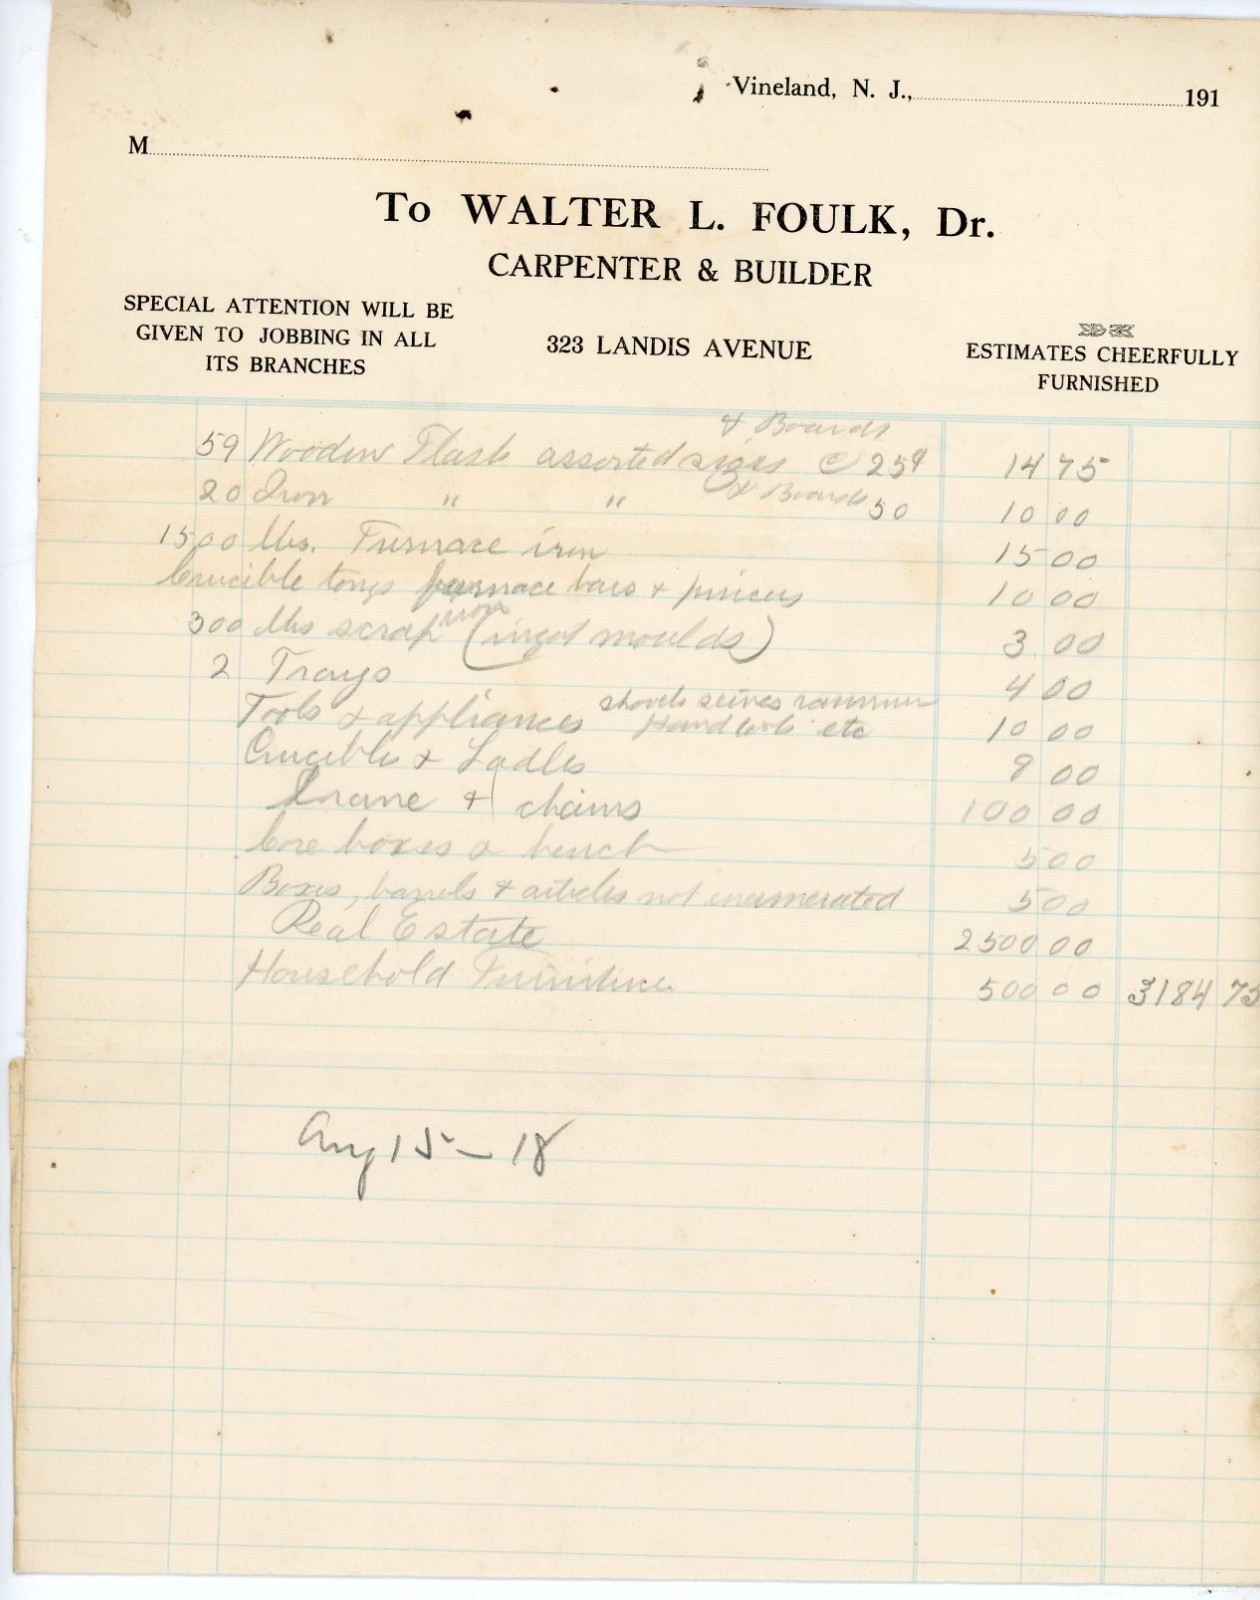 Vineland, N. J., 191
M
To WALTER L. FOULK, Dr.
CARPENTER & BUILDER
SPECIAL ATTENTION WILL BE
GIVEN TO JOBBING IN ALL
ITS BRANCHES
323 LANDIS AVENUE
ESTIMATES CHEERFULLY
FURNISHED
& Boards
59 Wooden Flask assorted sizes @ 25¢ 14 75
& Boards
20 Iron " " 50 10 00
1500 lbs. Furnace iron 15 00
Crucible tongs furnace bars & pincers 10 00
iron
300 lbs scrap (ingot moulds) 3 00
2 Trays 4 00
shovels seives rammer
Tools & appliances Hand tools etc 10 00
Crucibles & Ladles 8 00
Crane & chains 100 00
Core boxes & bench 5 00
Boxes, barrels & articles not enumerated 5 00
Real Estate 2500 00
Household Furniture 500 00 3184 75
Aug 15 - 18